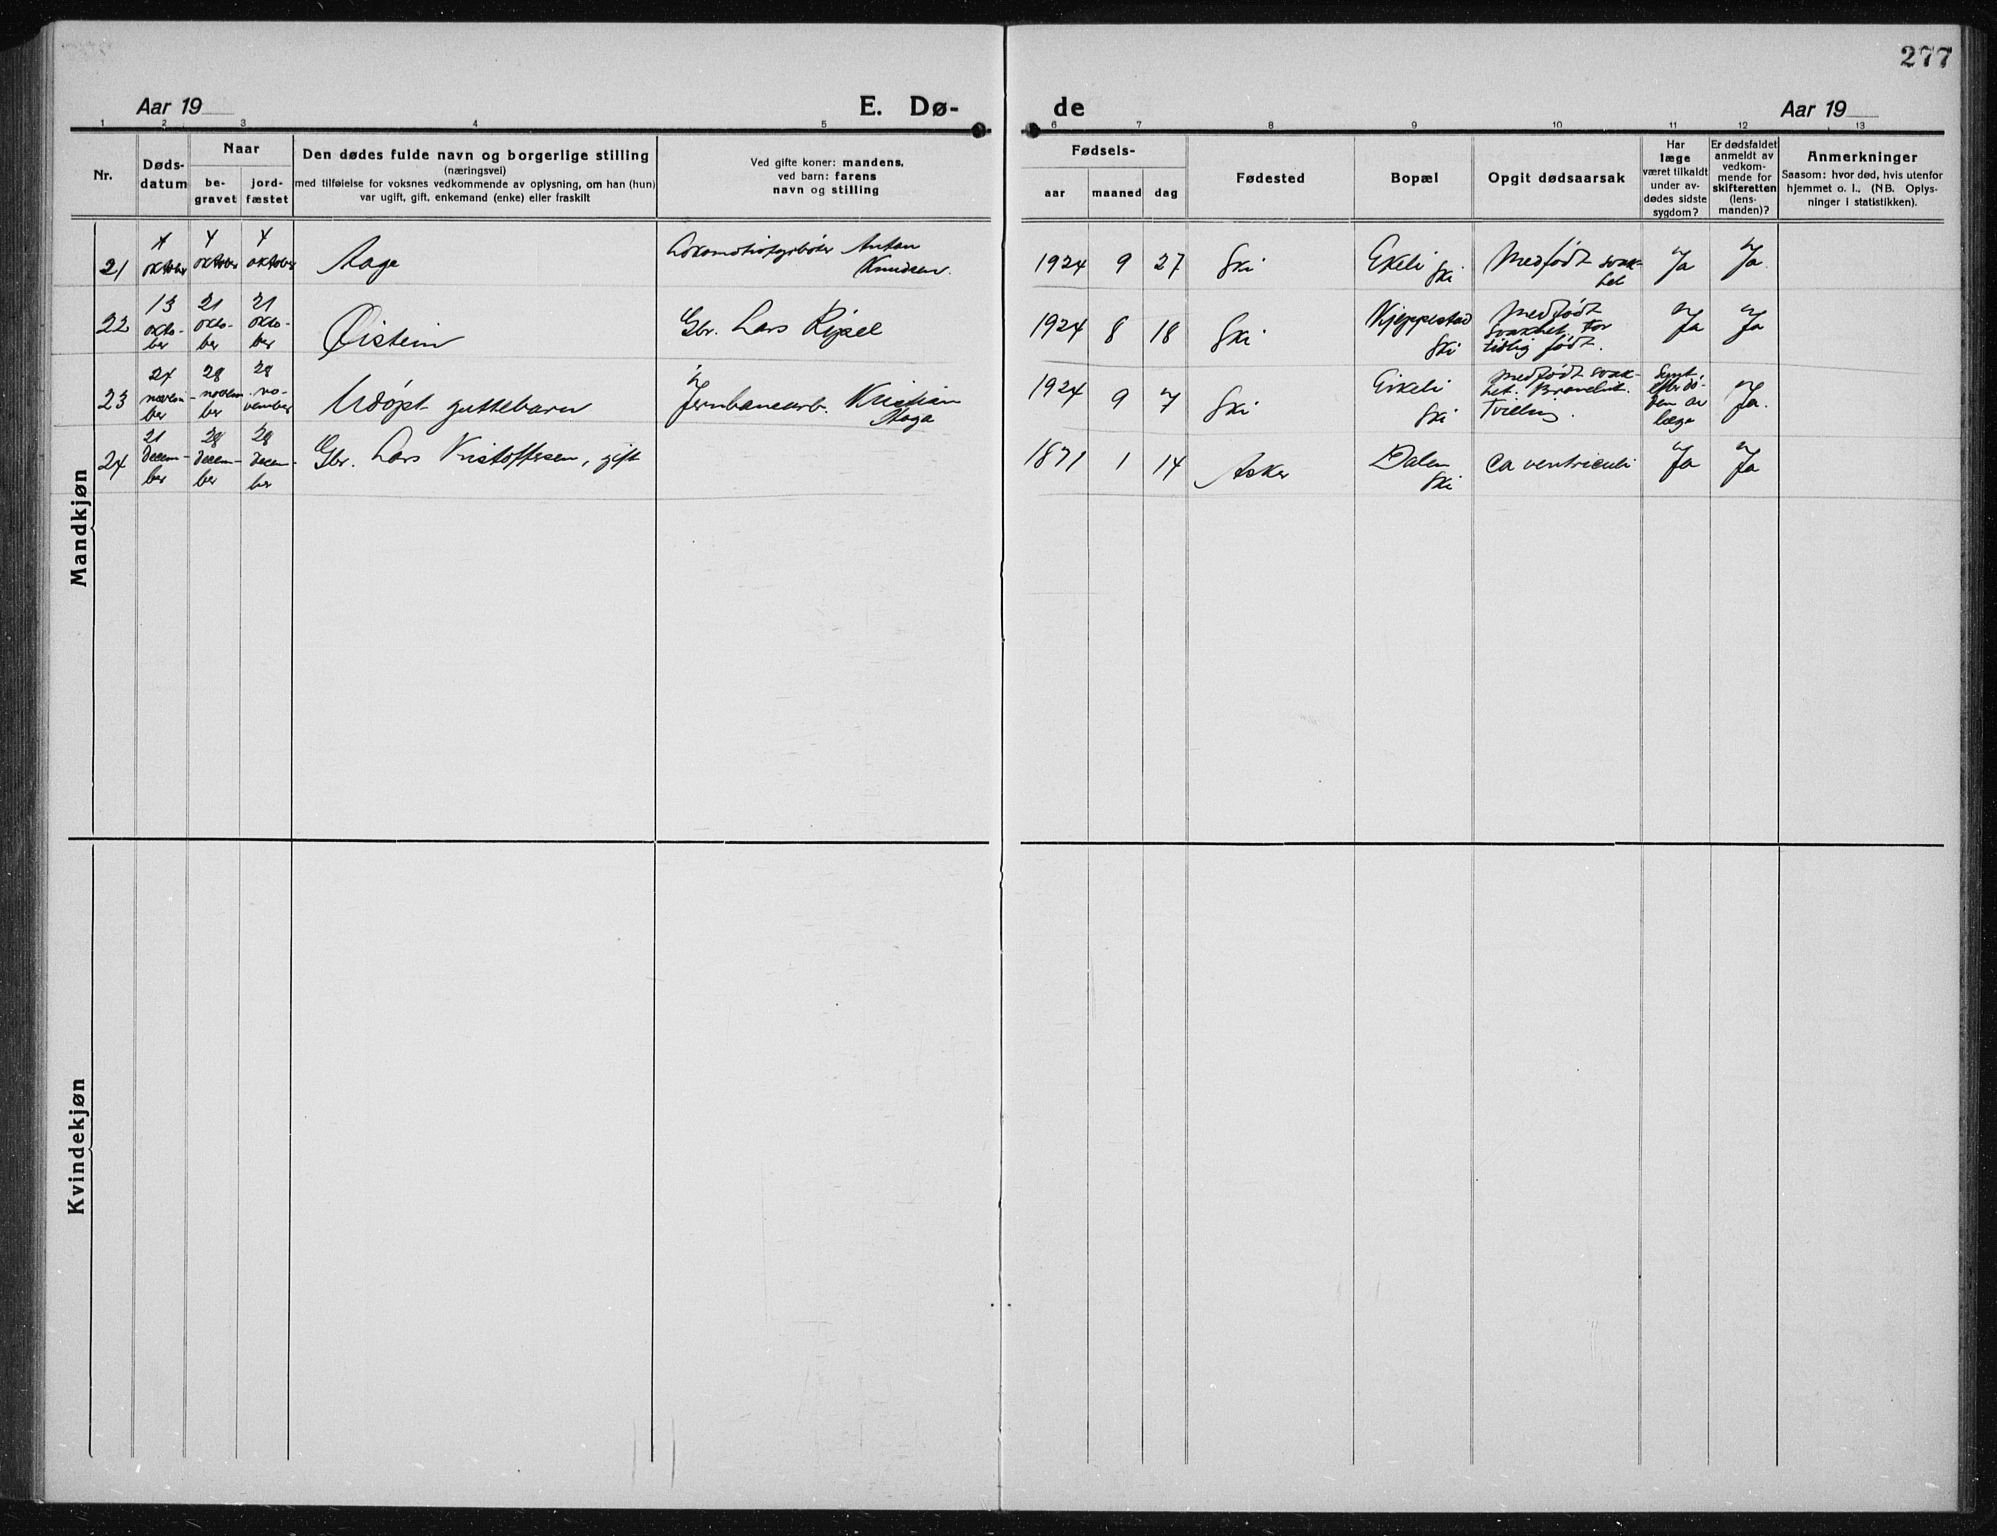 277
Aar 19
E. Dø-
de
Aar 19
1 2 3 4 5 6 7 8 9 10 11 12 13
Nr.
Døds-
datum
Naar
be-
gravet
jord-
fæstet
Den dødes fulde navn og borgerlige stilling
(næringsvei)
med tilføielse for voksnes vedkommende av oplysning, om han (hun)
var ugift, gift, enkemand (enke) eller fraskilt
Ved gifte koner: mandens,
ved barn: farens
navn og stilling
Fødsels-
aar maaned dag
Fødested
Bopæl
Opgit dødsaarsak
Har
læge
været tilkaldt
under av-
dødes sidste
sygdom?
Er dødsfaldet
anmeldt av
vedkom-
mende for
skifteretten
(lens-
manden)?
Anmerkninger
Saasom: hvor død, hvis utenfor
hjemmet o. l., (NB. Oplys-
ninger i statistikken).
Mandkjøn
21
oktober
4
oktober
4
oktober
Aage
Anton
Knudsen.
1924 9 27
Ski
Ekeli
Ski
Medfødt svak-
het
Ja
Ja.
22
13
okto-
ber
21
okto-
ber
21
okto-
ber
Øistein
Gbr. Lars
1924 8 18
Ski
Kjeppestad
Ski
Medfødt
svakhet. For
tidlig født.
Ja
Ja
23
novem-
ber
28
novem-
ber
28
no-
vember
Udöpt guttebarn
Jernbanearb. Kristian
Haga
1924 9 7
Ski
Eikeli
Ski
Medfødt svak-
het.
Tvilling.
efter dö-
den av
læge
Ja.
24
21
decem-
ber
28
decem-
ber
28
decem-
ber
Gbr. Lars Kristoffersen, gift
1871 1 14
Asker
Dalen
Ski
Ca ventriculi
Ja
Ja
Kvindekjøn